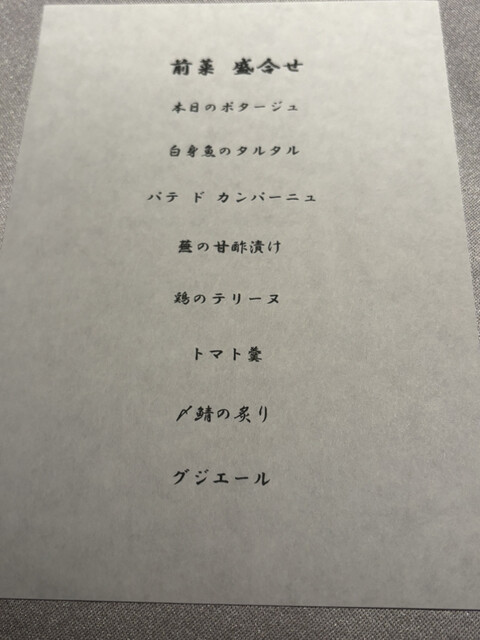 前菜 盛合せ
本日のポタージュ
白身魚のタルタル
パテ ド カンパーニュ
蕪の甘酢漬け
鶏のテリーヌ
トマト羹
〆鯖の炙り
グジエール